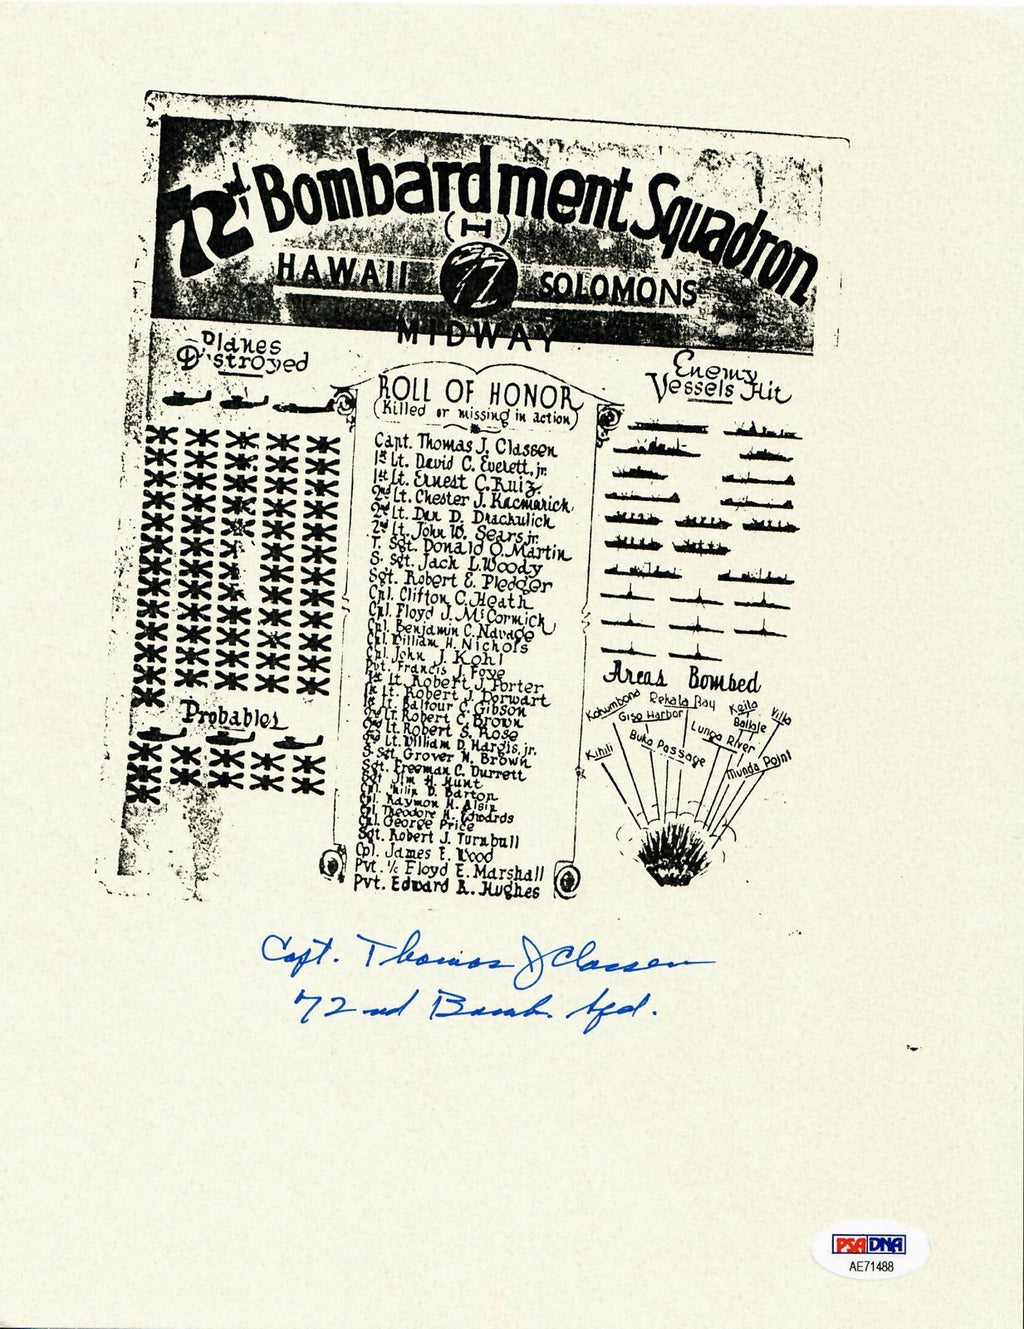 72nd Bombardment Squadron
(H)
HAWAII SOLOMONS
MIDWAY
Planes
Destroyed
Probables
ROLL OF HONOR
(Killed or missing in action)
Capt. Thomas J. Classen
1st Lt. David C. Everett, jr.
1st Lt. Ernest C. Ruiz.
2nd Lt. Chester J. Kacmarick
2nd Lt. Dan D. Drachulich
2nd Lt. John W. Sears jr.
T. Sgt. Donald O. Martin
S. Sgt. Jack L. Woody
Sgt. Robert E. Pledger
Cpl. Clifton C. Heath
Cpl. Floyd J. McCormick
Cpl. Benjamin C. Navage
Cpl. William H. Nichols
Cpl. John J. Kohl
Pvt. Francis J. Foye
1st Lt. Robert J. Porter
1st Lt. Robert J. Dorwart
1st Lt. Balfour C. Gibson
2nd Lt. Robert C. Brown
2nd Lt. Robert S. Rose
2nd Lt. William D. Hargis, jr.
S. Sgt. Grover N. Brown
Sgt. Freeman C. Durrett
Sgt. Jim H. Hunt
Cpl. Philip D. Barton
Cpl. Raymon H. Alsip
Cpl. Theodore H. Edwards
Cpl. George Price
Sgt. Robert J. Turnbull
Cpl. James E. Wood
Pvt. 1/c Floyd E. Marshall
Pvt. Edward R. Hughes
Enemy
Vessels Hit
Areas Bombed
Kahumbond
Rehala Bay
Keila
Villa
Giso Harbor
Ballale
Lunga River
Kihili
Buka Passage
Munda Point
Capt. Thomas J Classen
72nd Bomb. Sqd.
PSA DNA
AE71488